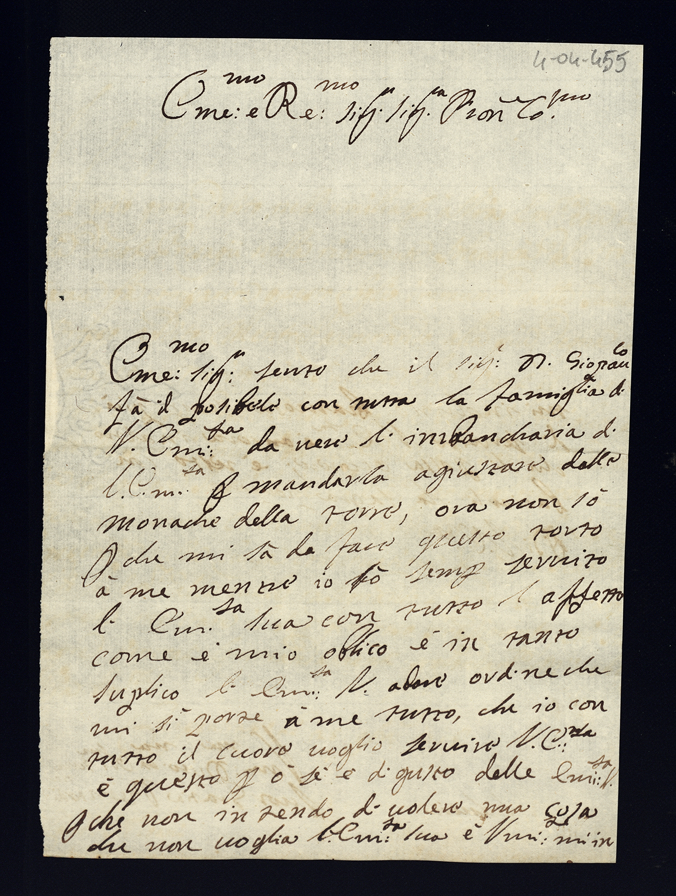 4-04-455
Eme: mo e Re: mo sigr: sigr: Pron Co: mo
Eme: mo sigr: sento che il sigr: D. Gio
fà il posibele con tutta la famiglia di
V. Emi: za da vere l' inbiancharia di
l. Em: za p mandarla agiustare dalle
monache della torre, ora non sò
p che mi sà da fare questo torto
à me mentre io ò semp servito
l' Emi: za sua con tutto l affetto
come è mio oblico è in tanto
suplico l' Emi: za V. adare ordine che
mi si porte à me tutto, che io con
tutto il cuore voglio servire V. E: za
è questo p ò sè è di gusto delle Emi: za V.
p che non in tendo di volere una cosa
che non voglia l' Em: za sua è V mi: mi in